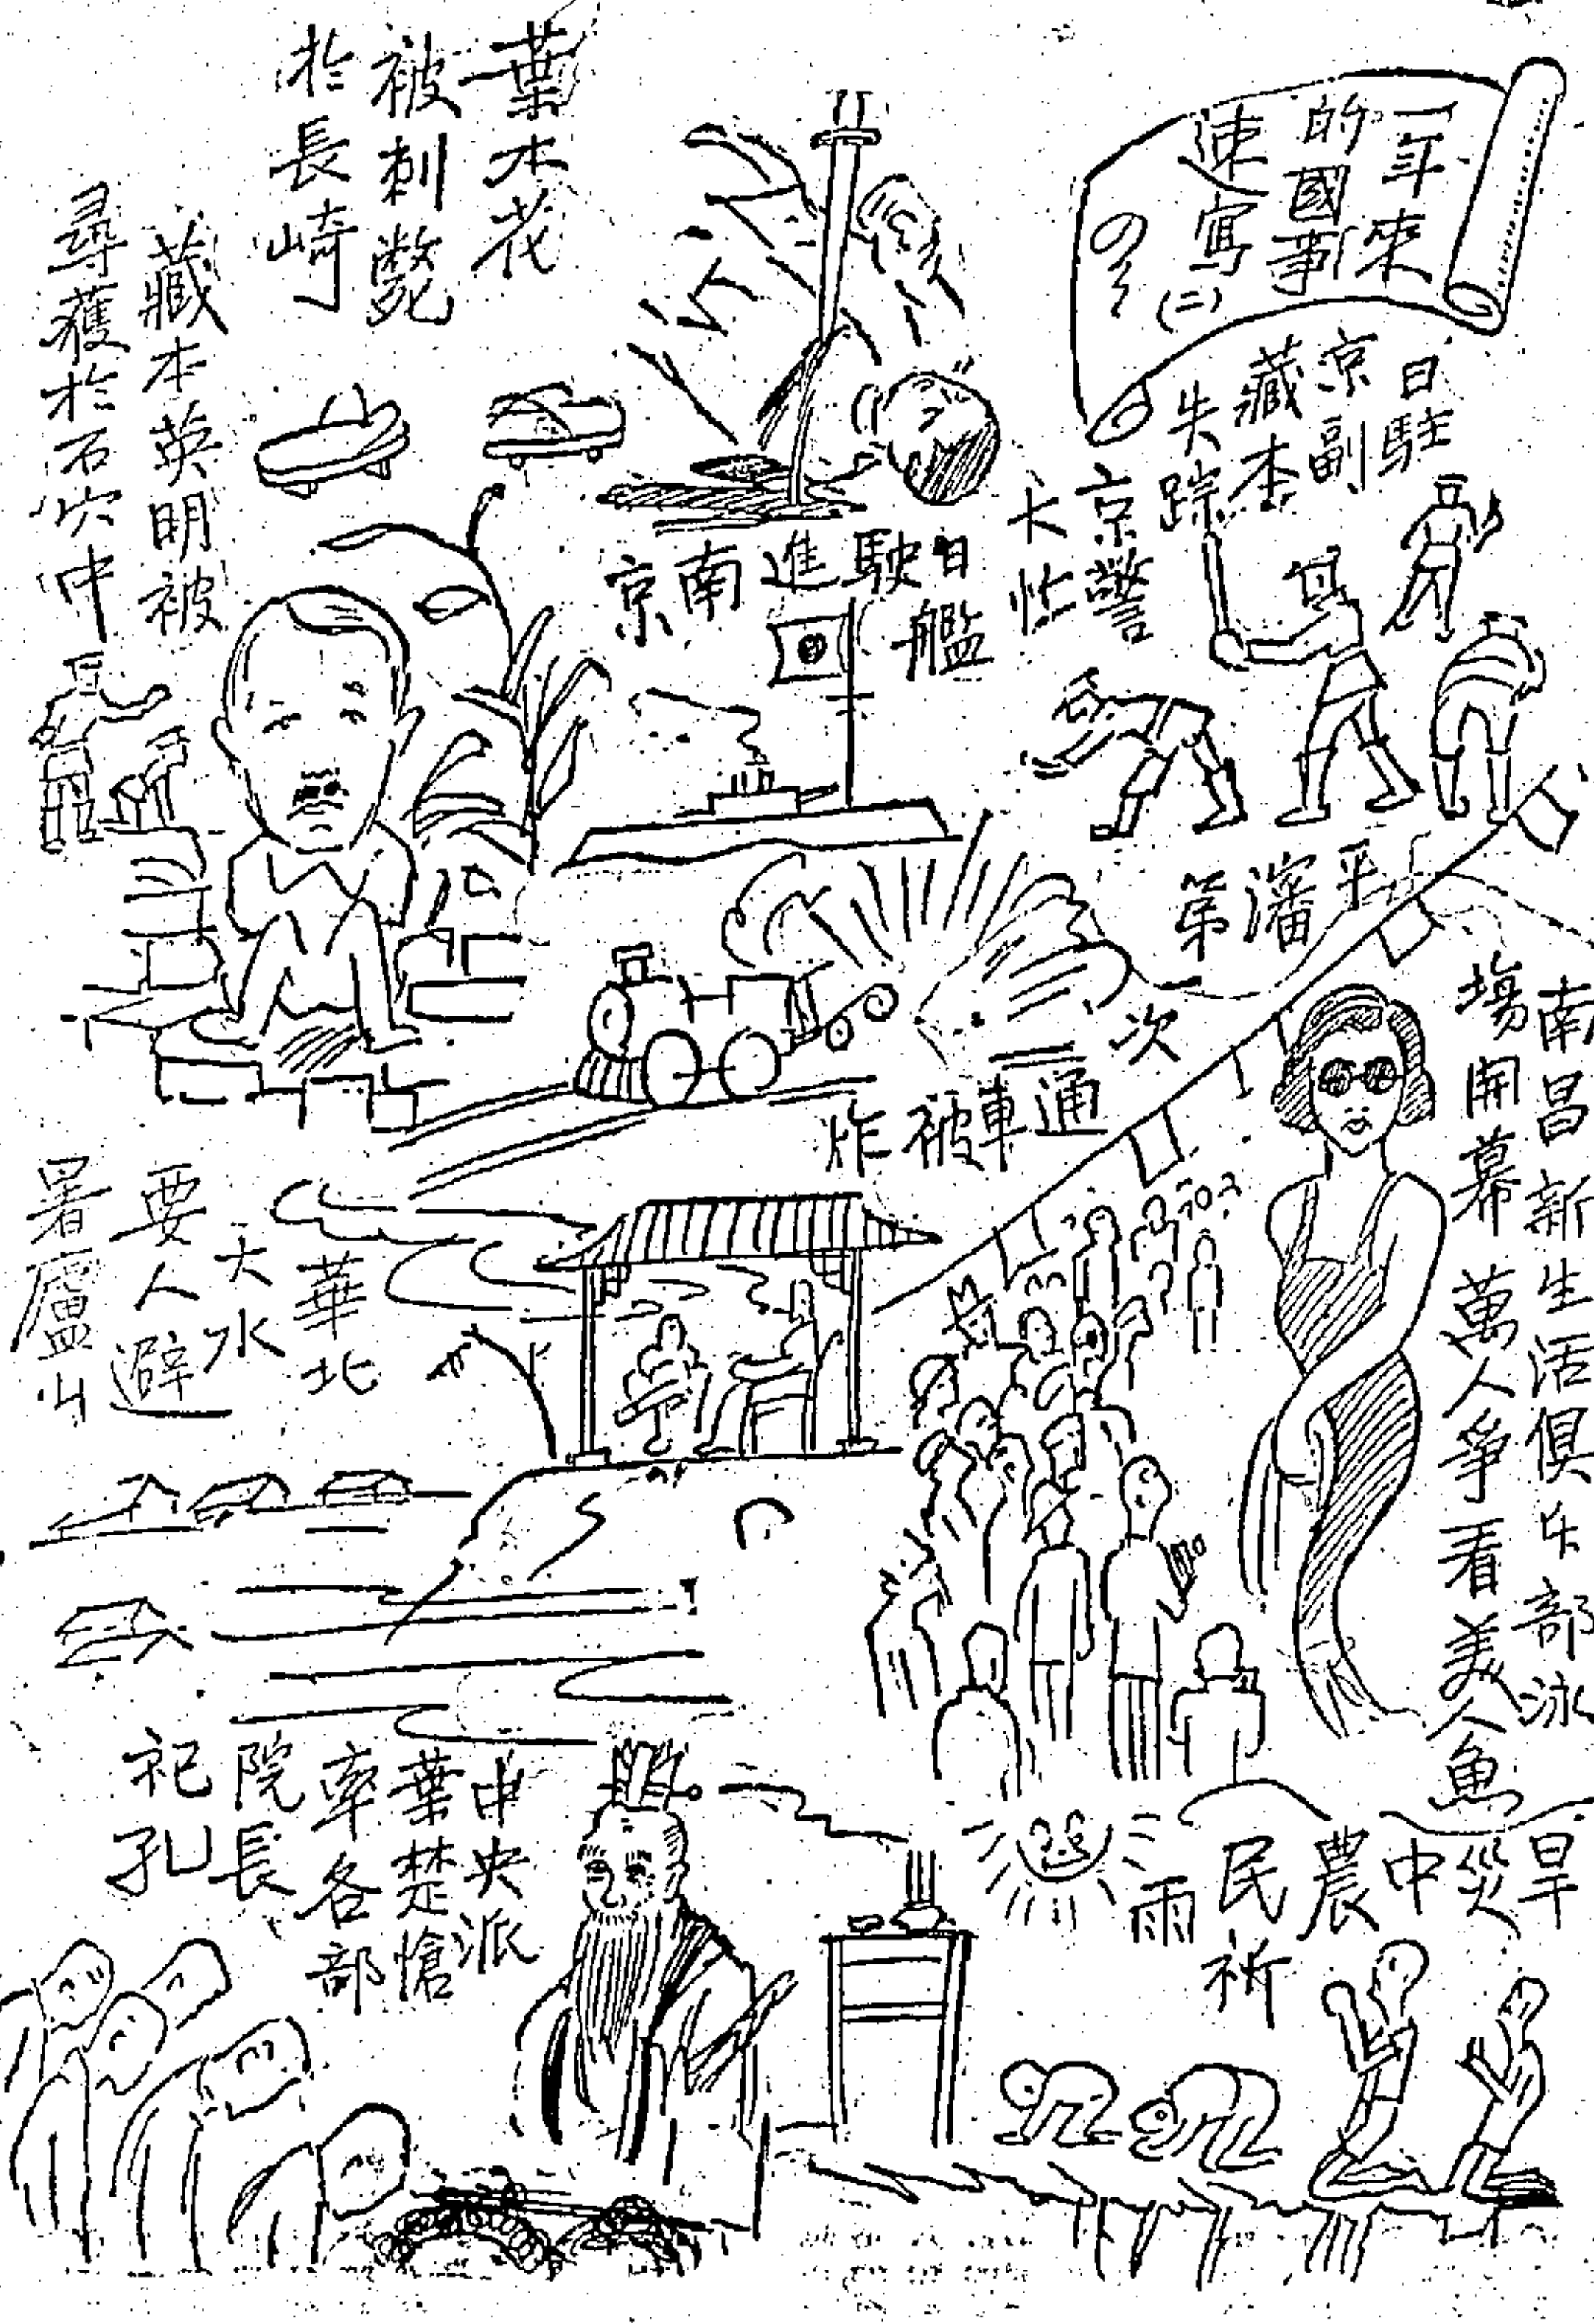 一年來
的國事
速寫
(二)
日駐
京副
藏本
失踪
京警
大忙
日艦
駛進南京
葉木花
被刺斃
於長崎
藏本英明被
尋獲於石穴中
平瀋
第一次
通車被炸
南昌新生活俱乐部泳
場開幕萬人爭看美人魚
華北
大水
要人避
署廬山
旱災中農民
祈雨
中央派
葉楚愴
率各部
院長
祀孔